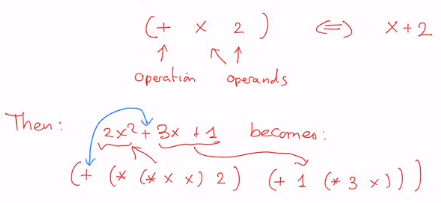 (+ x 2) <=> x+2
operation operands
Then: 2x²+3x+1 becomes:
(+ (* (* x x) 2) (+ 1 (* 3 x)))